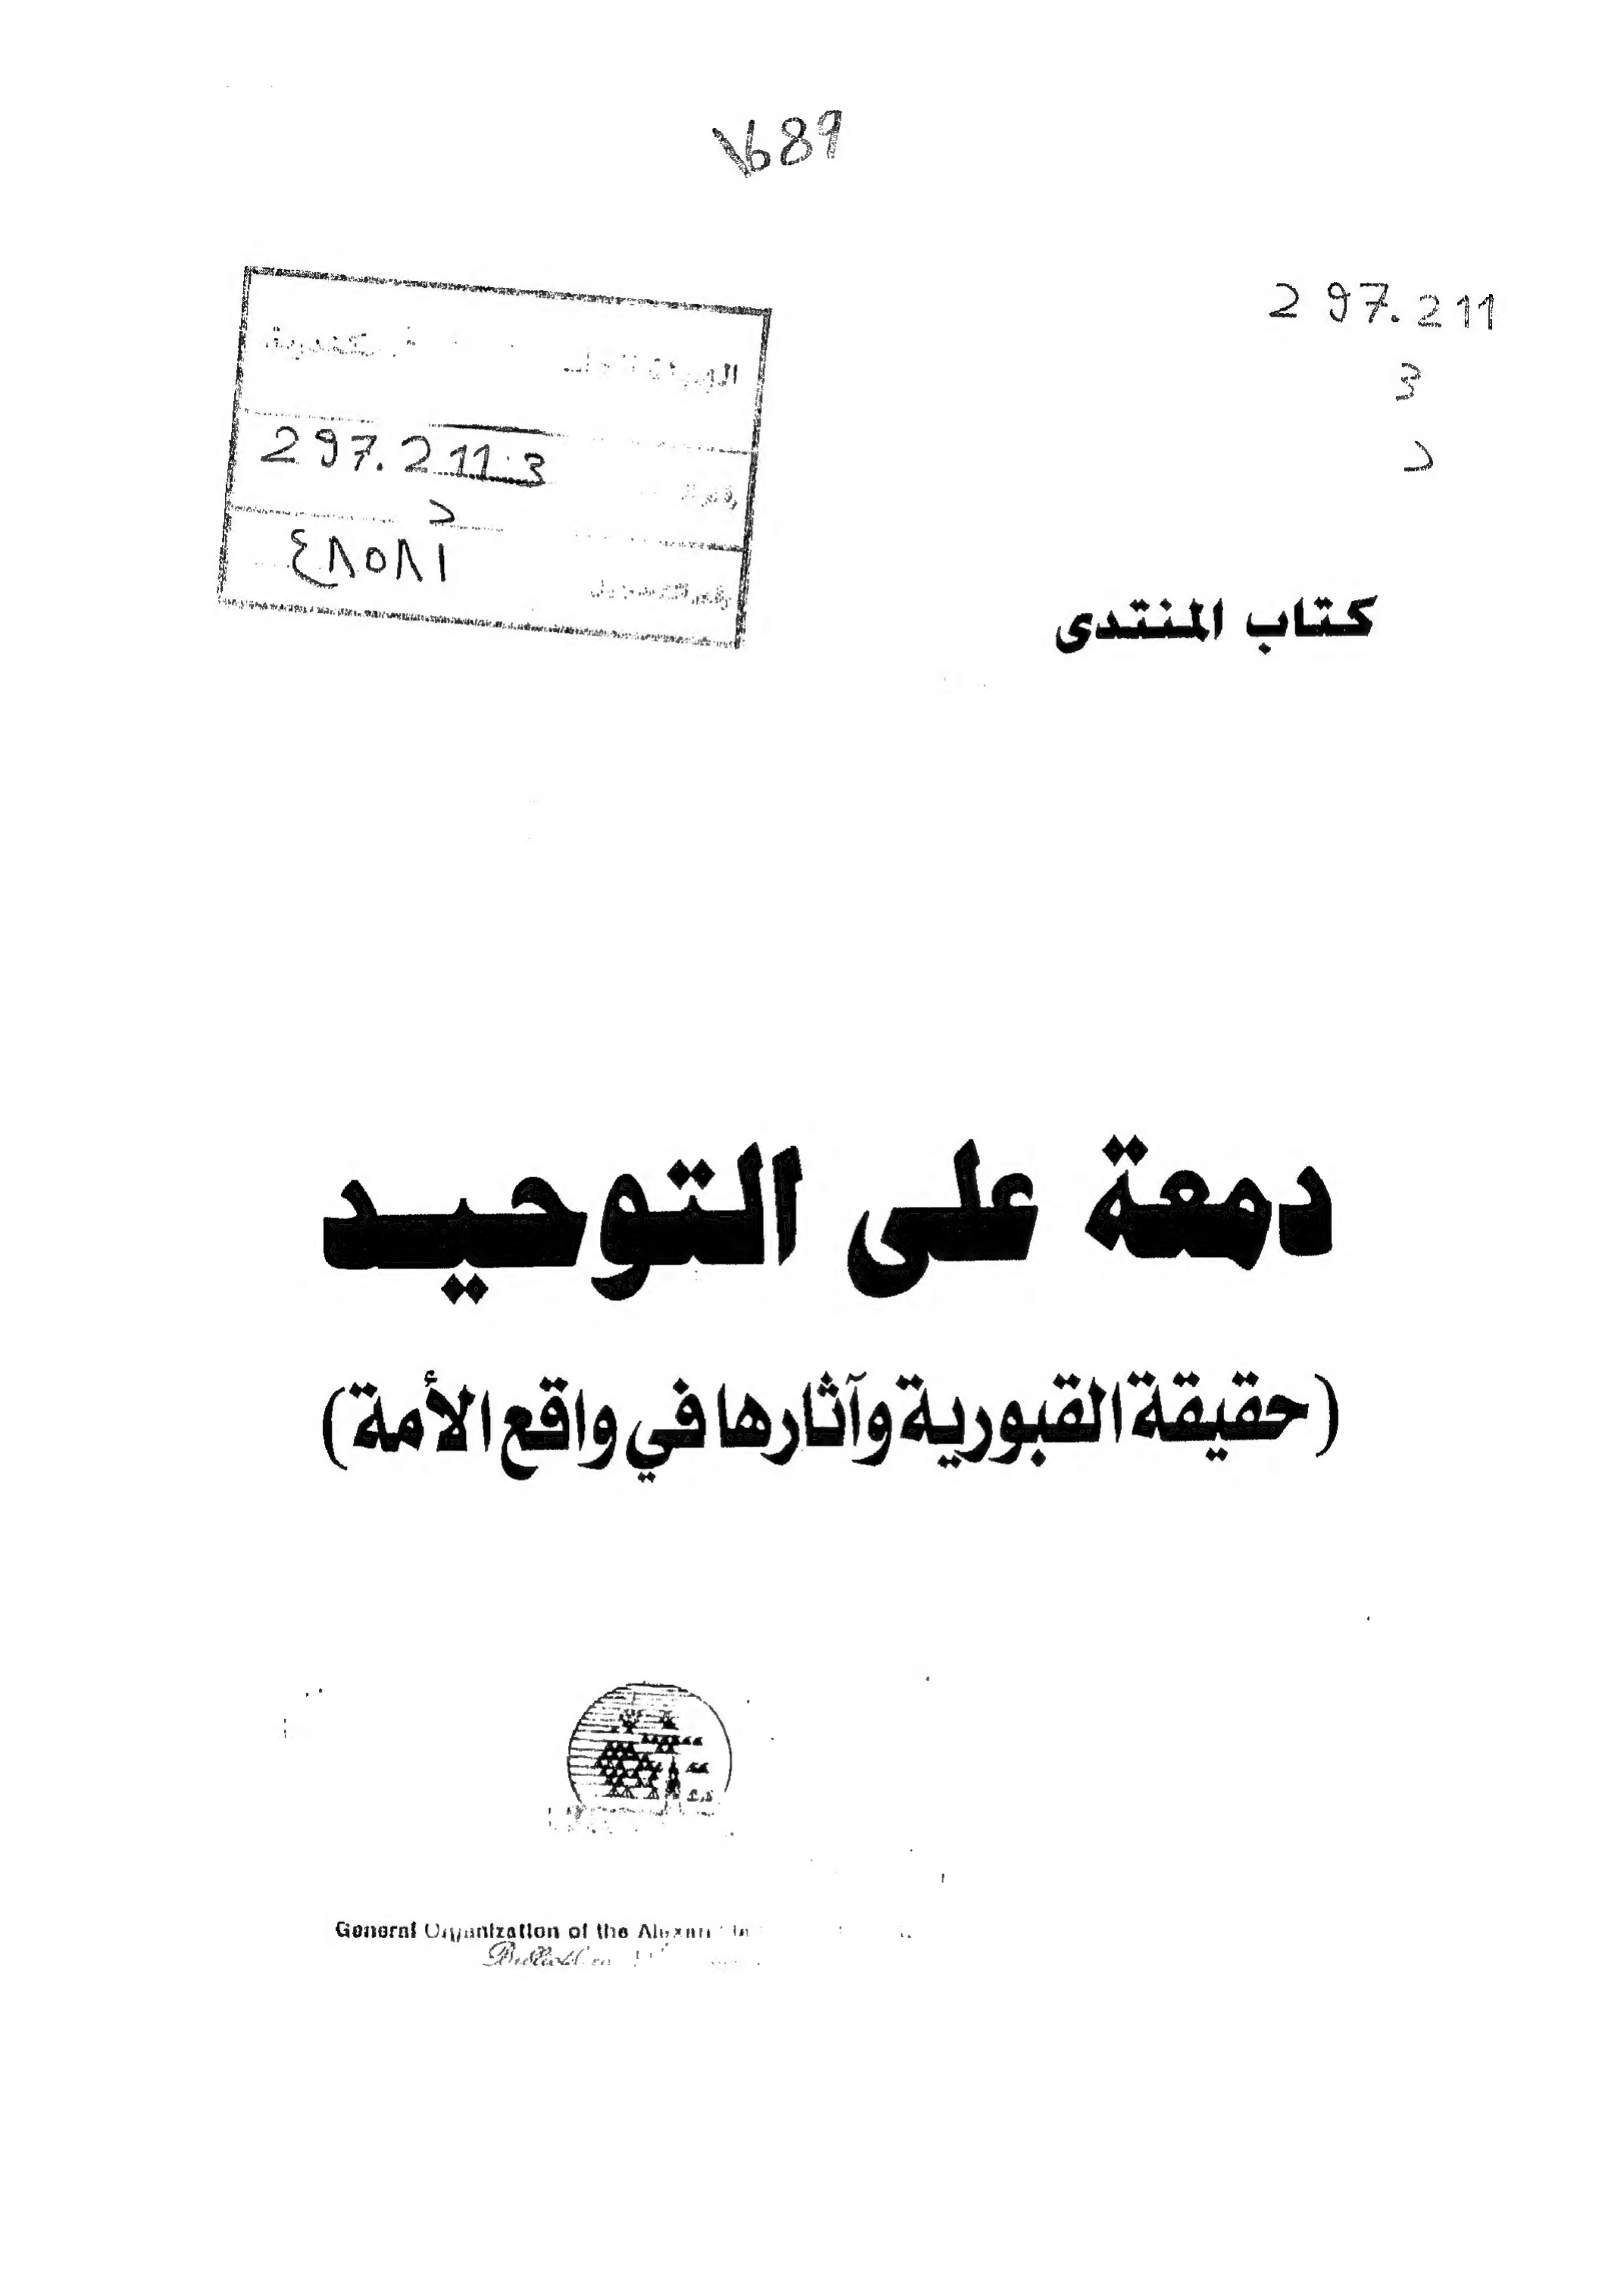 1689
297.211
3
د
297.211.3
د
٤٨٥٨١
كتاب المنتدى
دمعة على التوحيد
(حقيقة القبورية وآثارها في واقع الأمة)
General Organization of the